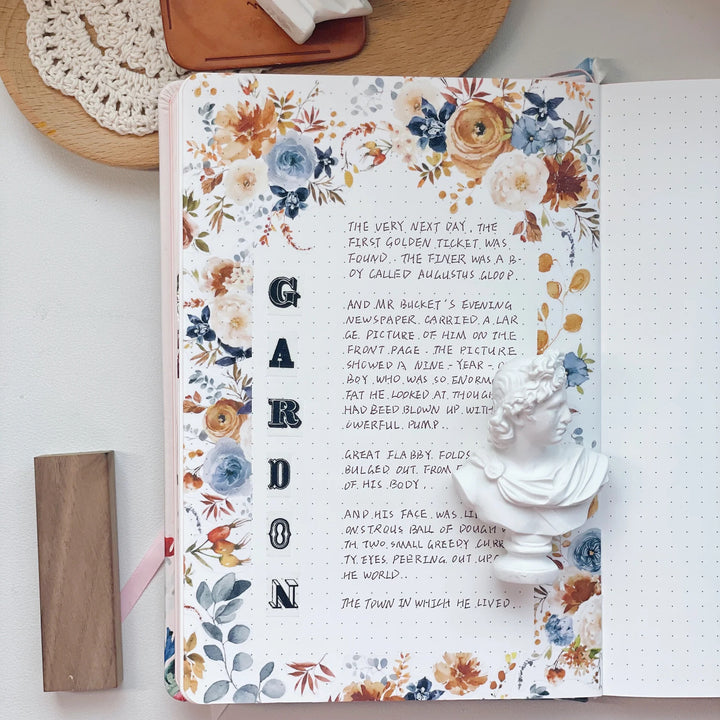 GARDON
THE VERY NEXT DAY, THE
FIRST GOLDEN TICKET WAS
FOUND.. THE FINER WAS A B-
OY CALLED AUGUSTUS GLOOP.
AND MR BUCKET'S EVENING
NEWSPAPER CARRIED A LAR
GE PICTURE OF HIM ON THE
FRONT PAGE. THE PICTURE
SHOWED A NINE-YEAR-O
BOY WHO WAS SO ENORM
FAT HE LOOKED AT THOUG
HAD BEED BLOWN UP WITH
OWERFUL PUMP..
GREAT FLABBY FOLDS
BULGED OUT FROM
OF HIS BODY..
AND HIS FACE WAS LI
ONSTROUS BALL OF DOUGH
TH TWO SMALL GREEDY CURR
TY EYES PEERING OUT UP
HE WORLD..
THE TOWN IN WHICH HE LIVED..